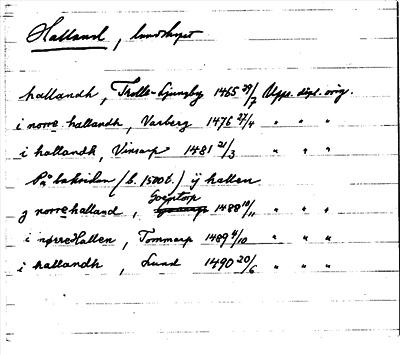 Halland, landskapet
hallandh, Trolle-Ljungby 1465 29/7 Upps. dipl. orig.
i norre hallandh, Varberg 1476 27/4 " " "
i hallandh, Vinsarp 1481 21/3 " " "
På baksidan (b. 1500 t.) ij hallan
j norre halland, Goentorp 1488 10/11 " " "
i nørre Hallen, Tommarp 1489 4/10 " " "
i hallandh, Lund 1490 20/6 " " "